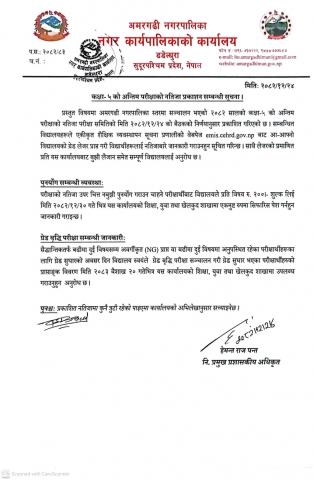 अमरगढी नगरपालिका
नगर कार्यपालिकाको कार्यालय
डडेल्धुरा
सुदूरपश्चिम प्रदेश, नेपाल
प.सं.: २०८२/८३
च.नं. :
मिति: २०८२/१२/२४
कक्षा-५ को अन्तिम परीक्षाको नतिजा प्रकाशन सम्बन्धी सूचना।
प्रस्तुत विषयमा अमरगढी नगरपालिका स्तरमा सञ्चालन भएको २०८२ सालको कक्षा ५ को अन्तिम
परीक्षाको नतिजा परीक्षा समितिको मिति २०८२/१२/२४ को बैठकको निर्णयानुसार प्रकाशित गरिएको छ। सम्बन्धित
विद्यालयहरूले एकीकृत शैक्षिक व्यवस्थापन सूचना प्रणालीको वेबपेज emis.cehrd.gov.np बाट आ-आफ्नो
विद्यालयको ग्रेड लेजर प्राप्त गरी विद्यार्थीहरूलाई नतिजाबारे जानकारी गराउनुहुन सूचित गरिन्छ। साथै लेजरको प्रमाणित
प्रति यस कार्यालयबाट बुझी लैजान समेत सम्पूर्ण विद्यालयलाई अनुरोध छ।
पुनर्योग सम्बन्धी व्यवस्था:
परीक्षाको नतिजा उपर चित्त नबुझी पुनर्योग गराउन चाहने परीक्षार्थीबाट विद्यालयले प्रति विषय रु. २००।- शुल्क लिई
मिति २०८२/१२/३० गते भित्र यस कार्यालयको शिक्षा, युवा तथा खेलकुद शाखामा एकमुष्ठ रुपमा सिफारिस पेश गर्नहुन
जानकारी गराइन्छ।
ग्रेड वृद्धि परीक्षा सम्बन्धी जानकारी:
सैद्धान्तिकतर्फ बढीमा दुई विषयसम्म अवर्गीकृत (NG) प्राप्त वा बढीमा दुई विषयमा अनुपस्थित रहेका परीक्षार्थीहरूका
लागि ग्रेड सुधारको अवसर दिन विद्यालय स्वयंले ग्रेड वृद्धि परीक्षा सञ्चालन गरी ग्रेड सुधार भएका परीक्षार्थीहरूको
प्राप्ताङ्क विवरण मिति २०८३ वैशाख २० गतेभित्र यस कार्यालयको शिक्षा, युवा तथा खेलकुद शाखामा उपलब्ध
गराउनुहुन अनुरोध छ।
पुनश्च: प्रकाशित नतिजामा कुनै त्रुटी रहेको पाइएमा कार्यालयको अभिलेखानुसार सच्याइनेछ।
हेमन्त राज पन्त
नि. प्रमुख प्रशासकीय अधिकृत
Scanned with CamScanner